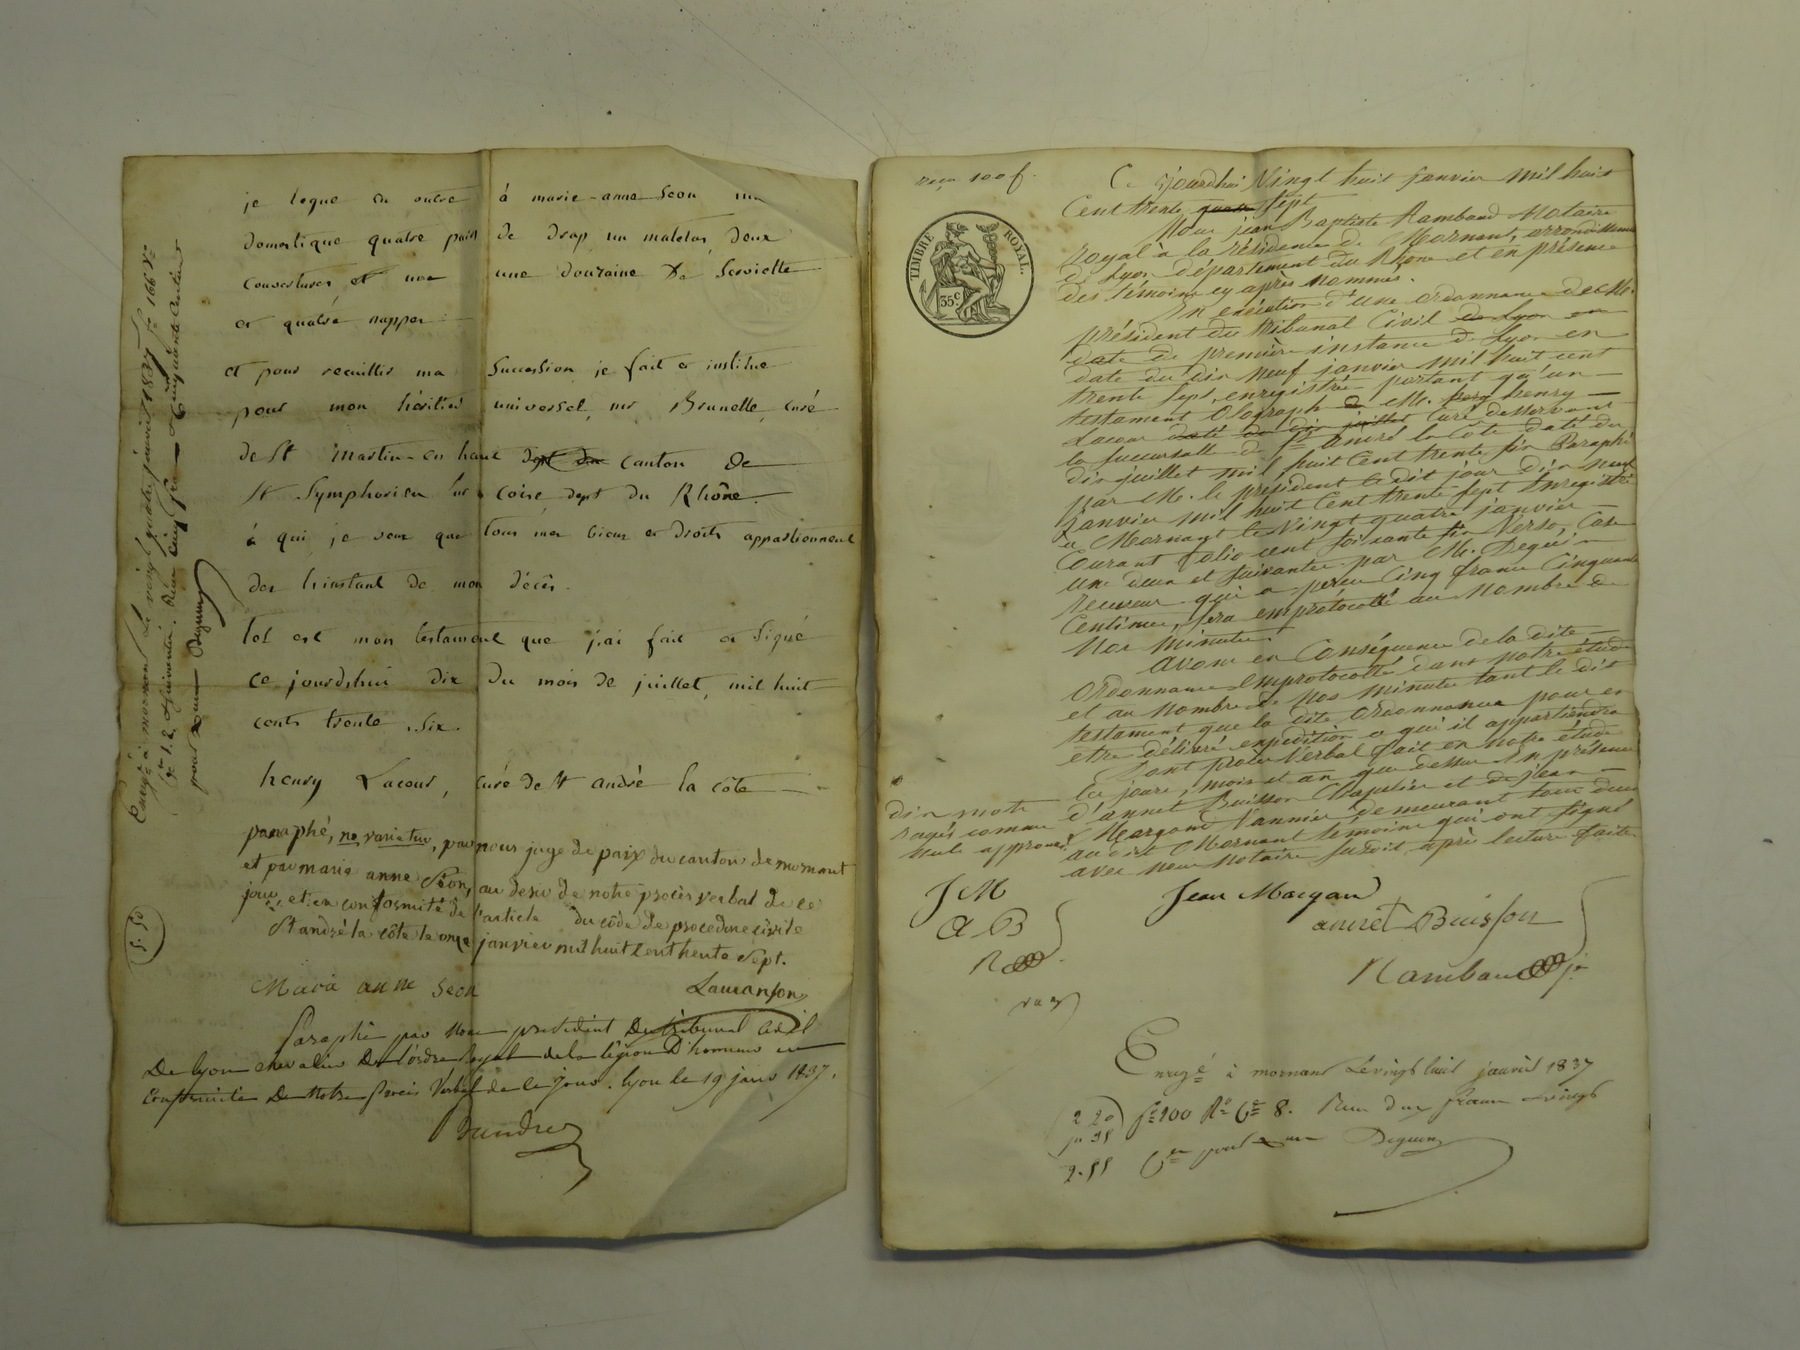 je legue en outre à marie-anne Seon ma
domestique quatre pairs de drap un matelas, deux
couvertures et une une douzaine de serviette
et quatre nappes
et pour recuillir ma succession je fait et institue
pour mon héritier universel, mr Brunelle, curé
de St martin-en haut canton de
St Symphorien sur coise, dept du Rhône.
à qui je veux que tous mes biens et droits appartiennent
des linstant de mon décès.
tel est mon testament que j'ai fait et signé
ce jourdhui dix du mois de juillet, mil huit
cents trente six.
henry Lacour, curé de St andré la côte
paraphé, ne varietur, par nous juge de paix du canton de mornant
et par marie anne Séon, au desir de notre procès verbal de ce
jour, et en conformité de l'article du côde de procedure civile
St andré la côte le onze janvier mil huit cent trente sept.
Marie anne Seon
Lauranson
Paraphé par Nous president Du tribunal Civil
De lyon chevalier De l'ordre Royal de la légion D'honneur en
Conformité De Notre Procès Verbal de ce jour. lyon le 19 janv 1837.
Enregé à mornant Le vingt quatre janvier 1837 fo 166 Vo
Ces 1. 2. & suivantes. Reçu cinq francs Cinquante Centimes
5. 50
reçu 100 f.
TIMBRE ROYAL.
35 c.
Ce jourdhui Vingt huit janvier mil huit
Cent trente quatre sept
Nous jean Baptiste Rambaud Notaire
royal à la résidence de Mornant, arrondissement
de Lyon département du Rhône et en présence
des témoins cy après nommés.
En exécution d'une ordonnance de M.
président du tribunal Civil de Lyon en
date de première instance de Lyon en
date du dix neuf janvier mil huit cent
trente sept, enregistrée portant qu'un
testament Olograph de M. henry
Lacour daté du dix juillet curé desservant
la succursalle de St andré la Côte daté du
dix juillet mil huit Cent trente six Paraphé
par M. le président le dit jour dix neuf
janvier mil huit Cent trente sept Enregistré
à Mornant le Vingt quatre janvier
Courant folio cent soixante six Verso, Case
un deux et suivantes par M. Deguin
receveur qui a perçu Cinq francs Cinquante
Centimes, sera emprotocollé au Nombre de
Nos minutes.
Avons en Conséquence de la dite
Ordonnance Emprotocollé dans notre étude
et au Nombre de Nos minutes tant le dit
testament que la dite Ordonnance pour en
etre délivré expédition a qui il appartiendra
Dont procès Verbal fait en notre étude
les jours, mois et an que dessus En présence
d'annet Buisson Chapelier et de jean
Margand Vannier demeurant tous deux
audit Mornant témoins qui ont signé
avec nous Notaire susdit après lecture faite
dix mots
rayés comme
nuls approuvés
J M
A B
R
Jean Margan
annet Buisson
Rambaud
Enregé à mornant Le vingt huit janvier 1837
fo 100 Ro Ce 8. Reçu deux francs & vingt
2 20
2. 55